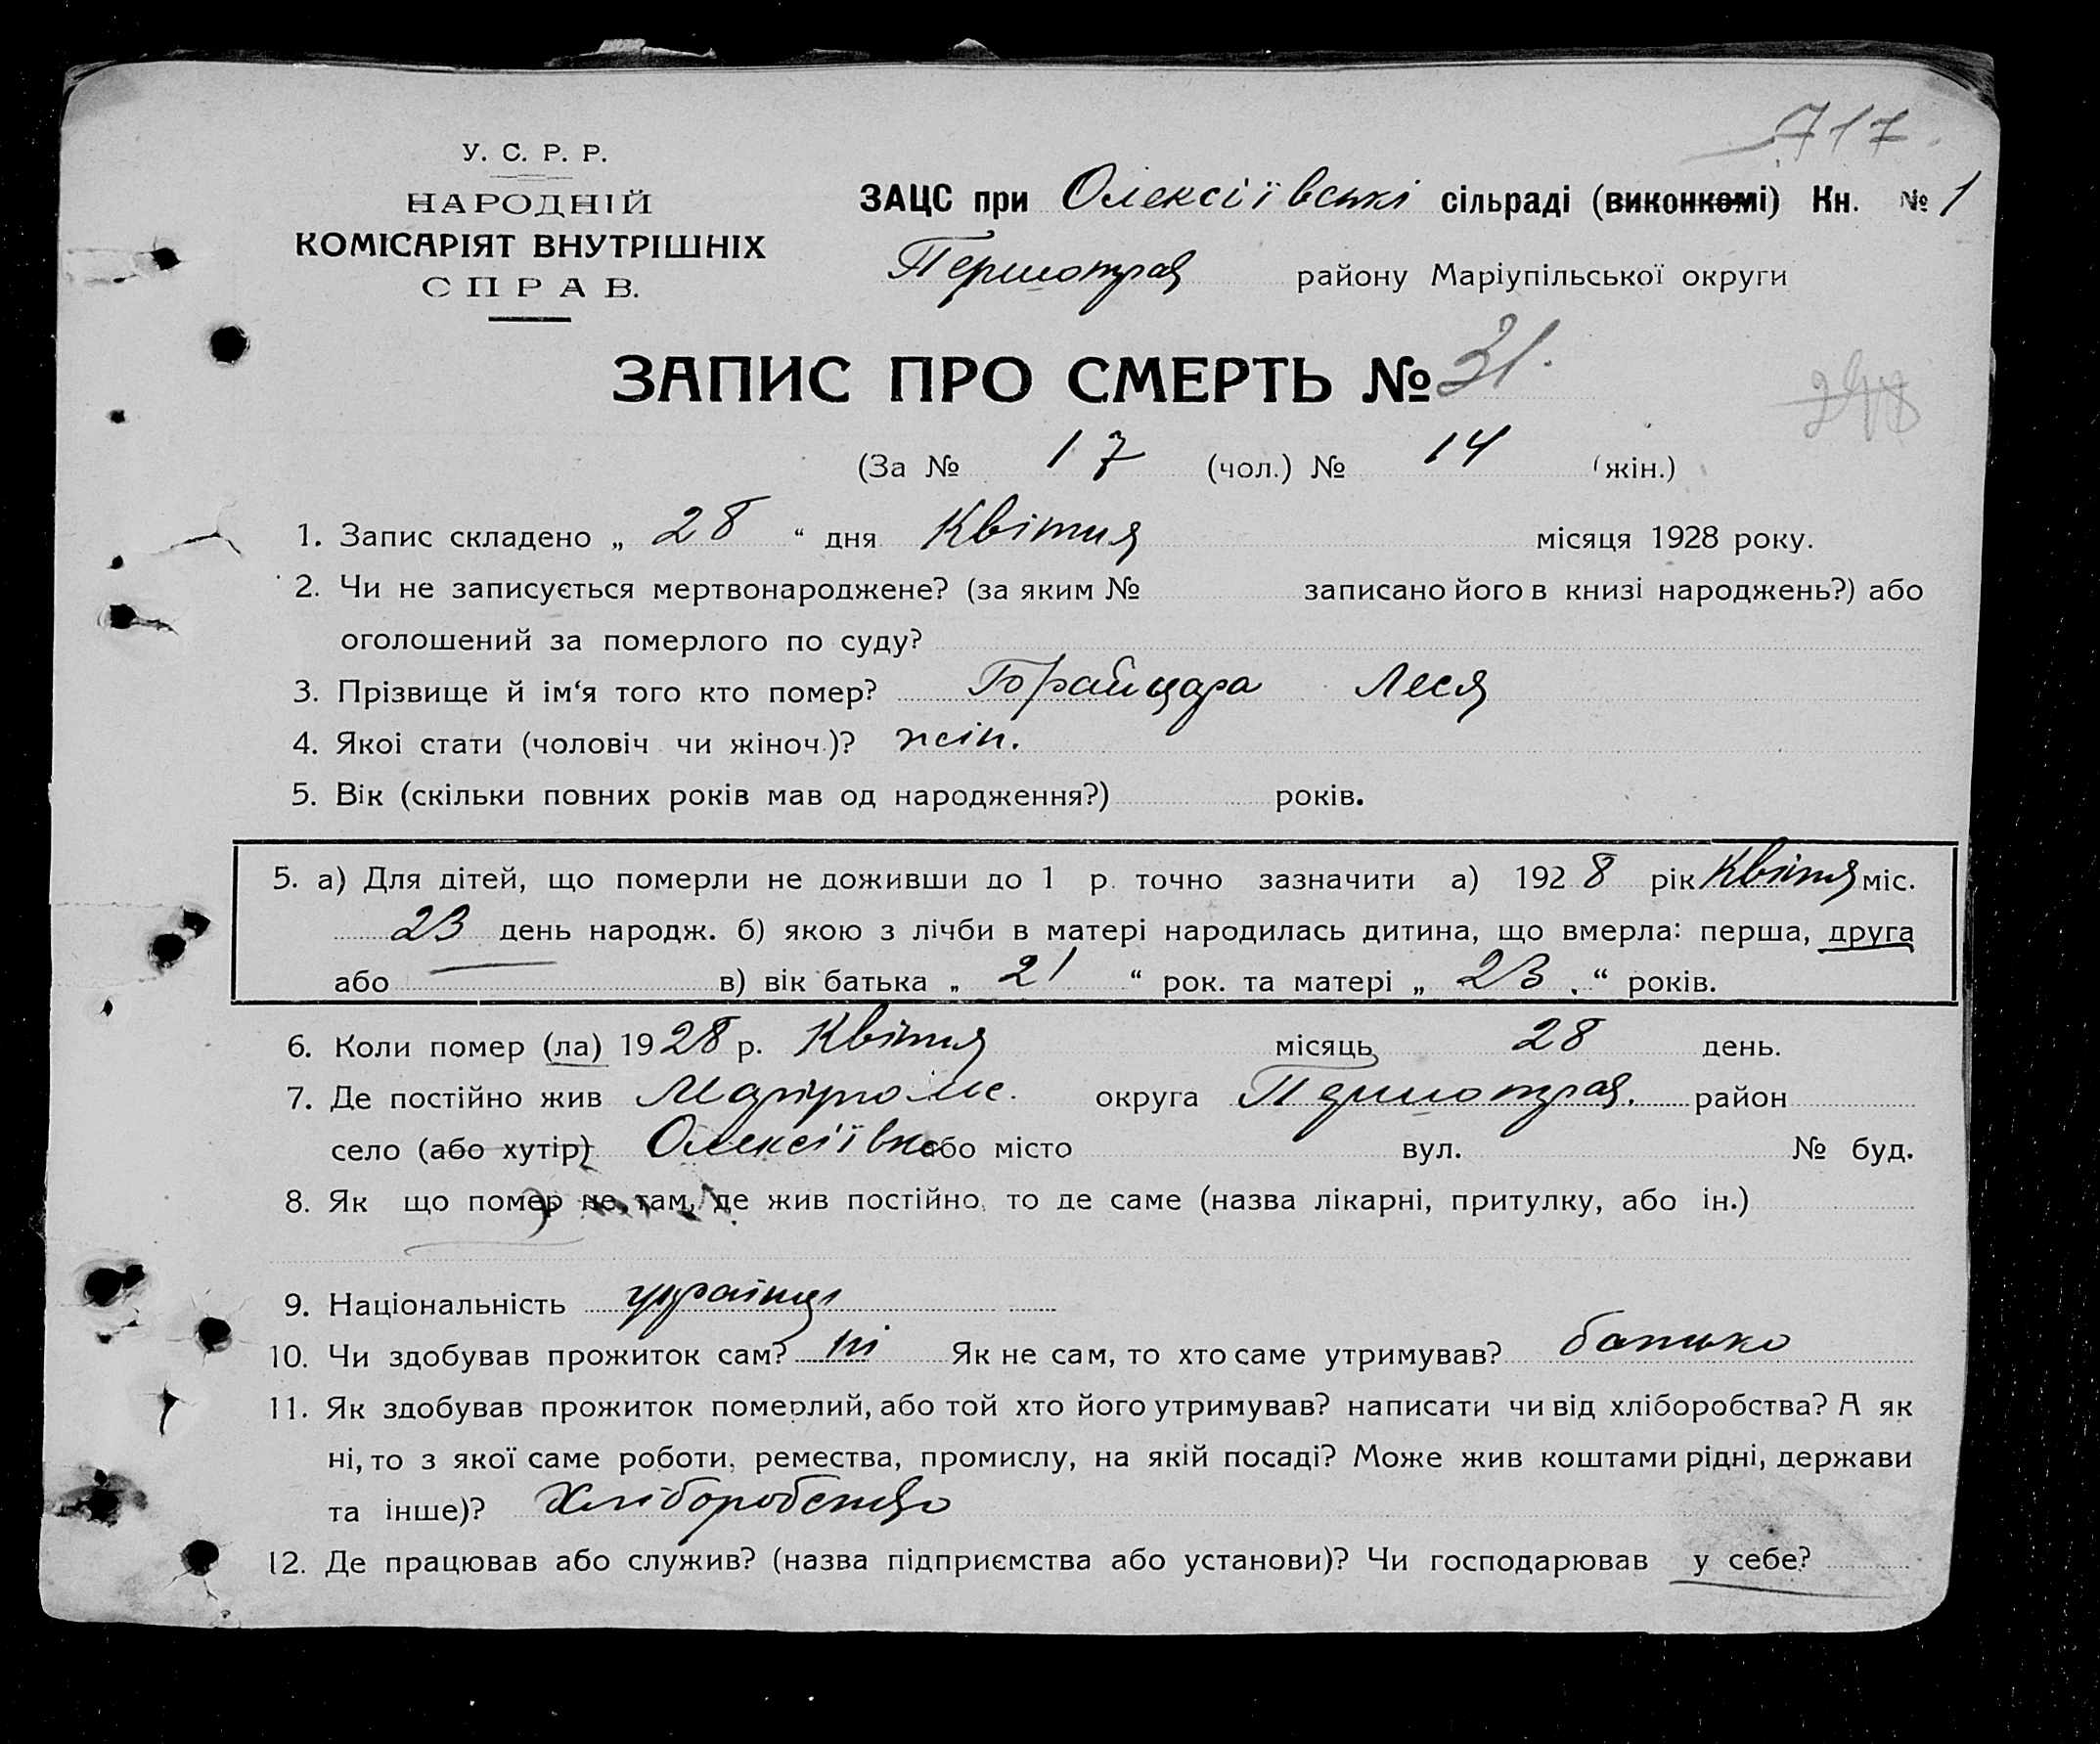 717.
У. С. Р. Р.
НАРОДНІЙ
КОМІСАРІЯТ ВНУТРІШНІХ
СПРАВ.
ЗАЦС при Олексіївські сільраді (виконкомі) Кн. № 1
Першотрав району Маріупільської округи
ЗАПИС ПРО СМЕРТЬ № 31.
(За № 17 (чол.) № 14 (жін.)
1. Запис складено „ 28 “ дня Квітня місяця 1928 року.
2. Чи не записується мертвонароджене? (за яким № записано його в книзі народжень?) або
оголошений за померлого по суду?
3. Прізвище й ім‘я того кто помер? Леся
4. Якоі стати (чоловіч чи жіноч.)? жін.
5. Вік (скільки повних років мав од народження?) років.
5. а) Для дітей, що померли не доживши до 1 р. точно зазначити а) 1928 рік Квітня міс.
23 день народж. б) якою з лічби в матері народилась дитина, що вмерла: перша, друга
або — в) вік батька „ 21 “ рок. та матері „ 23. “ років.
6. Коли помер (ла) 1928 р. Квітня місяць 28 день.
7. Де постійно жив округа Першотрав. район
село (або хутір) Олексіївка або місто вул. № буд.
8. Як що помер не там, де жив постійно, то де саме (назва лікарні, притулку, або ін.)
9. Національність
10. Чи здобував прожиток сам? ні Як не сам, то хто саме утримував? батько
11. Як здобував прожиток померлий, або той хто його утримував? написати чи від хліборобства? А як
ні, то з якої саме роботи, ремества, промислу, на якій посаді? Може жив коштами рідні, держави
та інше)? Хліборобство
12. Де працював або служив? (назва підприємства або установи)? Чи господарював у себе?